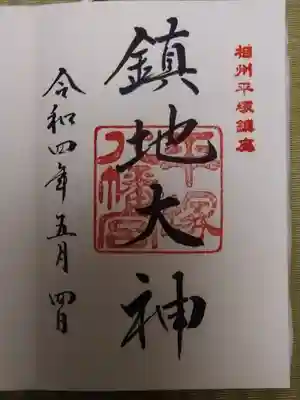 相州平塚鎮座
鎮地大神
平塚八幡宮
令和四年五月四日